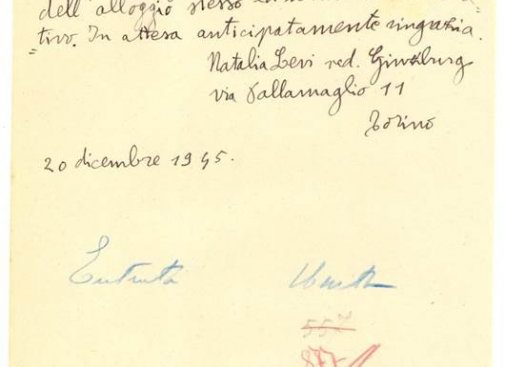 dell'alloggio stesso
tivo. In attesa anticipatamente ringrazia.
Natalia Levi ved. Ginzburg
via Pallamaglio 11
Torino
20 dicembre 1945.
Entrata
557
877